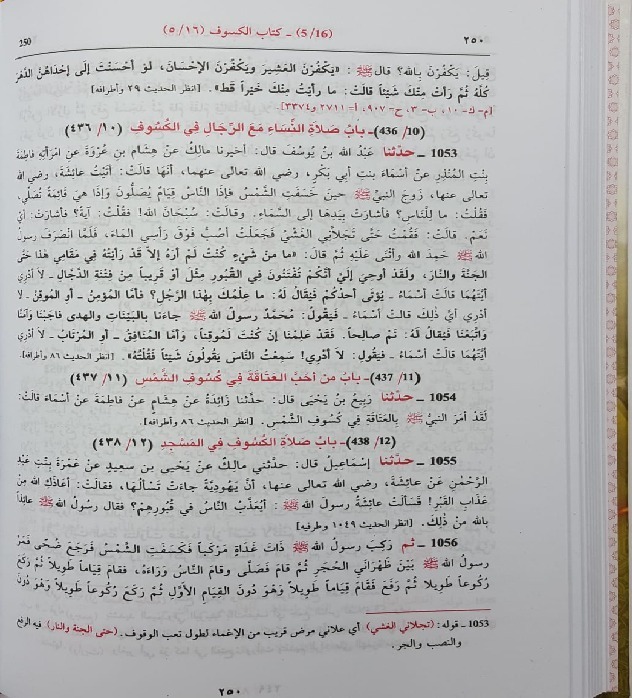 ٢٥٠ (5/16) - كتاب الكسوف (٥/١٦) 250
قِيلَ: يَكْفُرْنَ بِالله؟ قالَ ﷺ: «يَكْفُرْنَ العَشِيرَ وَيَكْفُرْنَ الإِحْسَانَ، لَوْ أَحْسَنْتَ إِلَى إِحْدَاهُنَّ الدَّهْرَ
كُلَّهُ ثُمَّ رَأَتْ مِنْكَ شَيْئاً قَالَتْ: ما رأَيْتُ مِنْكَ خَيْراً قَط». [انظر الحديث ٢٩ وأطرافه]
[م- ك- ١٠، ب- ٣، ح- ٩٠٧، أ- ٢٧١١ و٣٣٧٤].
(436 /10) - بابُ صَلاَةِ النِّسَاءِ مَعَ الرِّجَالِ في الكُسُوفِ (١٠/ ٤٣٦)
1053 ـ حدّثنا عَبْدُ الله بنُ يُوسُفَ قال: أخبرنا مالِكٌ عنْ هِشَامِ بنِ عُرْوَةَ عنِ امْرَأَتِهِ فاطِمَةَ
بِنْتِ المُنْذِرِ عنْ أسْمَاءَ بنتِ أبي بَكرٍ، رضي الله تعالى عنهما، أنَّهَا قالَتْ: أَتَيْتُ عائِشَةَ، رضي الله
تعالى عنها، زَوجَ النبيِّ ﷺ حينَ خَسَفَتِ الشَّمْسُ فَإِذَا النَّاسُ قِيَامٌ يُصَلُّونَ وَإِذَا هيَ قائِمَةٌ تُصَلِّي،
فَقُلْتُ: ما لِلنَّاسِ؟ فأشارَتْ بِيَدِهَا إلى السَّمَاءِ. وقالَتْ: سُبْحَانَ الله! فقُلْتُ: آيَةٌ؟ فأشارَتْ: أيْ
نَعَمْ. قالَتْ: فَقُمْتُ حَتَّى تَجَلاَّنِي الغَشْيُ فَجَعَلْتُ أصُبُّ فَوْقَ رَأسِي المَاءَ، فَلَمَّا انْصَرَفَ رسولُ
الله ﷺ حَمِدَ الله وأثْنَى عَلَيْهِ ثُمَّ قالَ: «ما مِنْ شَيْءٍ كُنْتُ لَمْ أرَهُ إلاَّ قَدْ رَأَيْتُهُ في مَقَامِي هَذا حَتَّى
الجَنَّةَ والنارَ، ولَقَدْ أوحِيَ إلَيَّ أنَّكُمْ تُفْتَنُونَ في القُبُورِ مِثْلَ أوْ قَرِيباً مِنْ فِتْنَةِ الدَّجَّالِ ـ لاَ أَدْرِي
أيَّتُهُمَا قالَتْ أسْمَاءُ ـ يُؤتَى أحَدُكُمْ فَيُقَالُ لَهُ: ما عِلْمُكَ بِهذَا الرَّجُلِ؟ فأمَّا المُؤْمِنُ ـ أوِ المُوقِنُ ـ لاَ
أدْرِي أيَّ ذَلِكَ قالَتْ أسْمَاءُ ـ فَيَقُولُ: مُحَمَّدٌ رسولُ الله ﷺ جاءَنا بِالبَيِّنَاتِ والهدى فأجَبْنَا وَآمَنَّا
واتَّبَعْنَا فَيُقالُ لَهُ: نَمْ صالِحاً. فَقَدْ عَلِمْنَا إنْ كُنْتَ لَمُوقِناً، وأمَّا المُنَافِقُ ـ أوِ المُرْتَابُ ـ لاَ أدْرِي
أيَّتَهُمَا قَالَتْ أسْمَاءُ ـ فَيَقُولُ: لاَ أدْرِي! سَمِعْتُ النَّاسَ يَقُولُونَ شَيْئاً فَقُلْتُهُ». [انظر الحديث ٨٦ وأطرافه].
(437 /11) - بابُ من أحَبَّ العَتَاقَةَ في كُسُوفِ الشَّمْسِ (١١/ ٤٣٧)
1054 ـ حدّثنا رَبِيعُ بنُ يَحْيَى قال: حدّثنا زائِدَةُ عنْ هِشَامٍ عنْ فاطِمَةَ عنْ أسْمَاءَ قالَتْ:
لَقَدْ أمَرَ النبيُّ ﷺ بِالعَتَاقَةِ في كُسُوفِ الشَّمْسِ. [انظر الحديث ٨٦ وأطرافه].
(438 /12) - بابُ صَلاَةِ الكُسُوفِ في المَسْجِدِ (١٢/ ٤٣٨)
1055 ـ حدّثنا إسْمَاعِيلُ قال: حدّثني مالِكٌ عنْ يَحْيَى بنِ سعيدٍ عنْ عَمْرَةَ بِنْتِ عَبْدِ
الرَّحْمنِ عنْ عائِشَةَ، رضي الله تعالى عنها، أنَّ يَهُودِيَّةً جاءَتْ تَسْألُهَا، فقالَتْ: أعَاذَكِ الله مِنْ
عَذَابِ القَبْرِ! فَسَألَتْ عائِشَةُ رسولَ الله ﷺ: أيُعَذَّبُ النَّاسُ في قُبُورِهِمْ؟ فقال رسولُ الله ﷺ عائِذاً
بالله مِنْ ذَلِكَ. [انظر الحديث ١٠٤٩ وطرفيه]
1056 ـ ثم رَكِبَ رسولُ الله ﷺ ذَاتَ غَدَاةٍ مَرْكَباً فَكَسَفَتِ الشَّمْسُ فَرَجَعَ ضُحًى فَمَرَّ
رسولُ الله ﷺ بَيْنَ ظَهْرَانَيِ الحُجَرِ ثُمَّ قامَ فَصَلَّى وقامَ النَّاسُ وَرَاءَهُ، فقامَ قِيَاماً طَوِيلاً ثُمَّ رَكَعَ
رُكُوعاً طَوِيلاً ثُمَّ رَفَعَ فَقَامَ قِيَاماً طَوِيلاً وَهوَ دُونَ القِيَامِ الأوَّلِ ثُمَّ رَكَعَ رُكُوعاً طَوِيلاً وَهوَ دُونَ
1053 ـ قوله: (تجلاني الغشي) أي علاني مرض قريب من الإغماء لطول تعب الوقوف. (حتى الجنة والنار) فيه الرفع
والنصب والجر.
٢٥٠